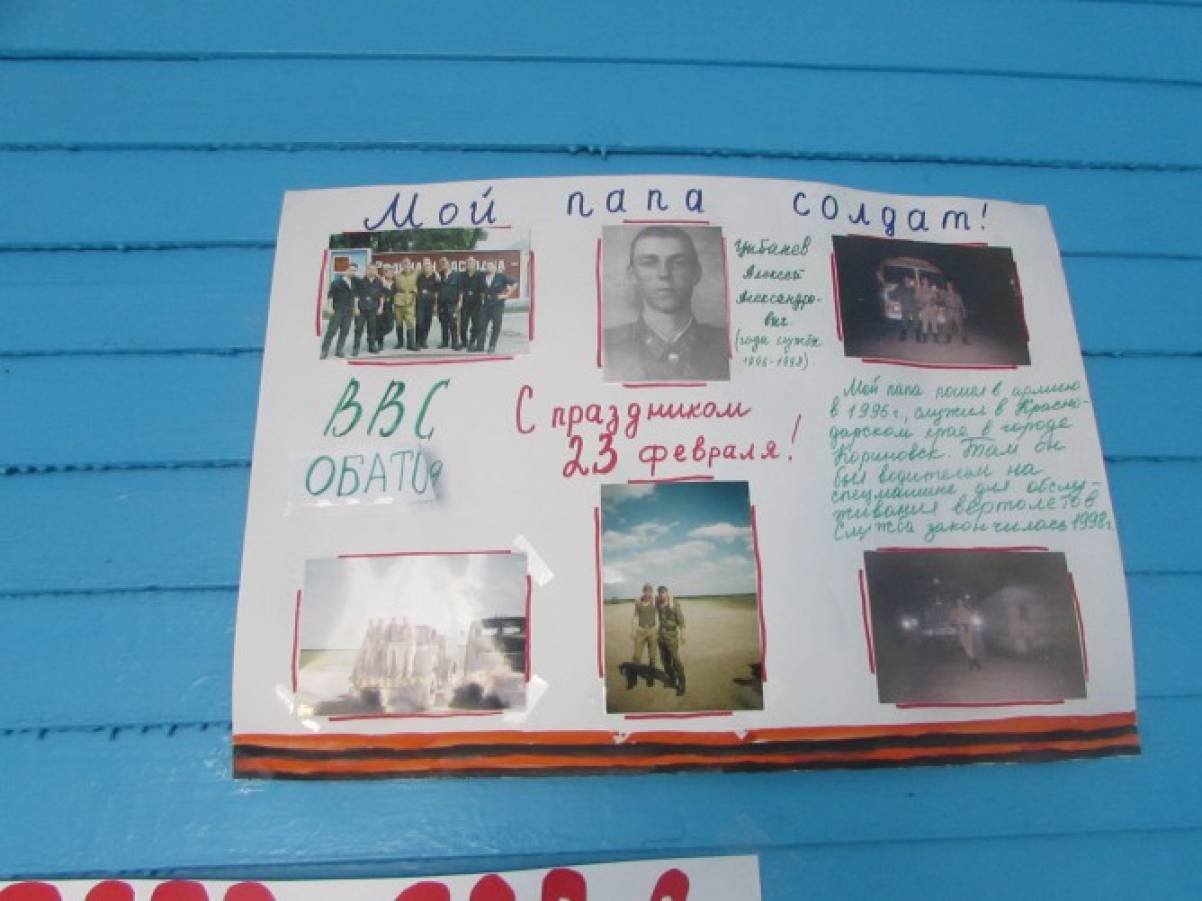 Мой папа солдат!
Цибанев
Алексей
Александро-
вич.
(годы службы
1996-1998)
ВВС
ОБАТО
С праздником
23 февраля!
Мой папа пошел в армию
в 1996г, служил в Красно-
дарском крае в городе
Кориновск. Там он
был водителем на
спецмашине для обслу-
живания вертолетов
Служба закончилась 1998г.